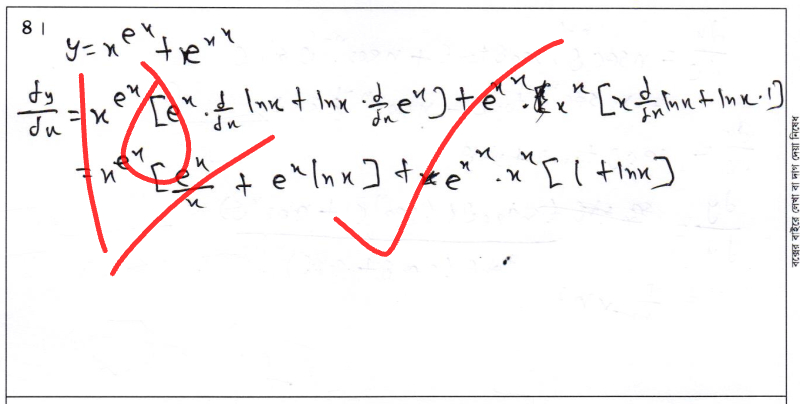 8।
y = x^{e^x} + e^{x^x}
dy/dx = x^{e^x} [e^x · d/dx lnx + lnx · d/dx e^x] + e^{x^x} · x^x [x d/dx lnx + lnx · 1]
= x^{e^x} [e^x/x + e^x lnx] + e^{x^x} · x^x [1 + lnx]
বক্সের বাইরে লেখা বা দাগ দেয়া নিষেধ